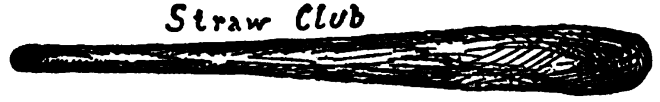 Straw Club